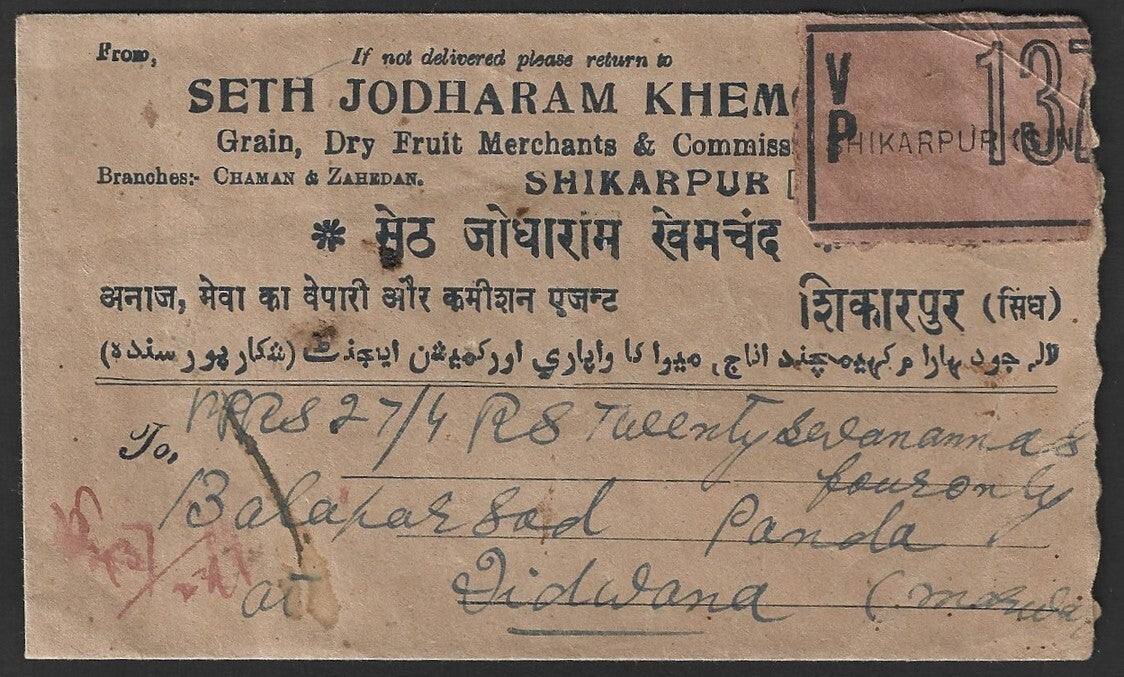 From,
If not delivered please return to
SETH JODHARAM KHEM
Grain, Dry Fruit Merchants & Commiss
Branches:- CHAMAN & ZAHEDAN.
SHIKARPUR [
V P 137
SHIKARPUR (SIN
* सेठ जोधाराम खेमचंद
अनाज, मेवा का वेपारी और कमीशन एजन्ट
शिकारपुर (सिंध)
اناج، ميوا کا واپاري اور کميشن ايجنٽ (شکارپور سنده)
To,
RS 27/4 RS Twenty sevanannas
four only
Balaparsad Panda
at Didwana (